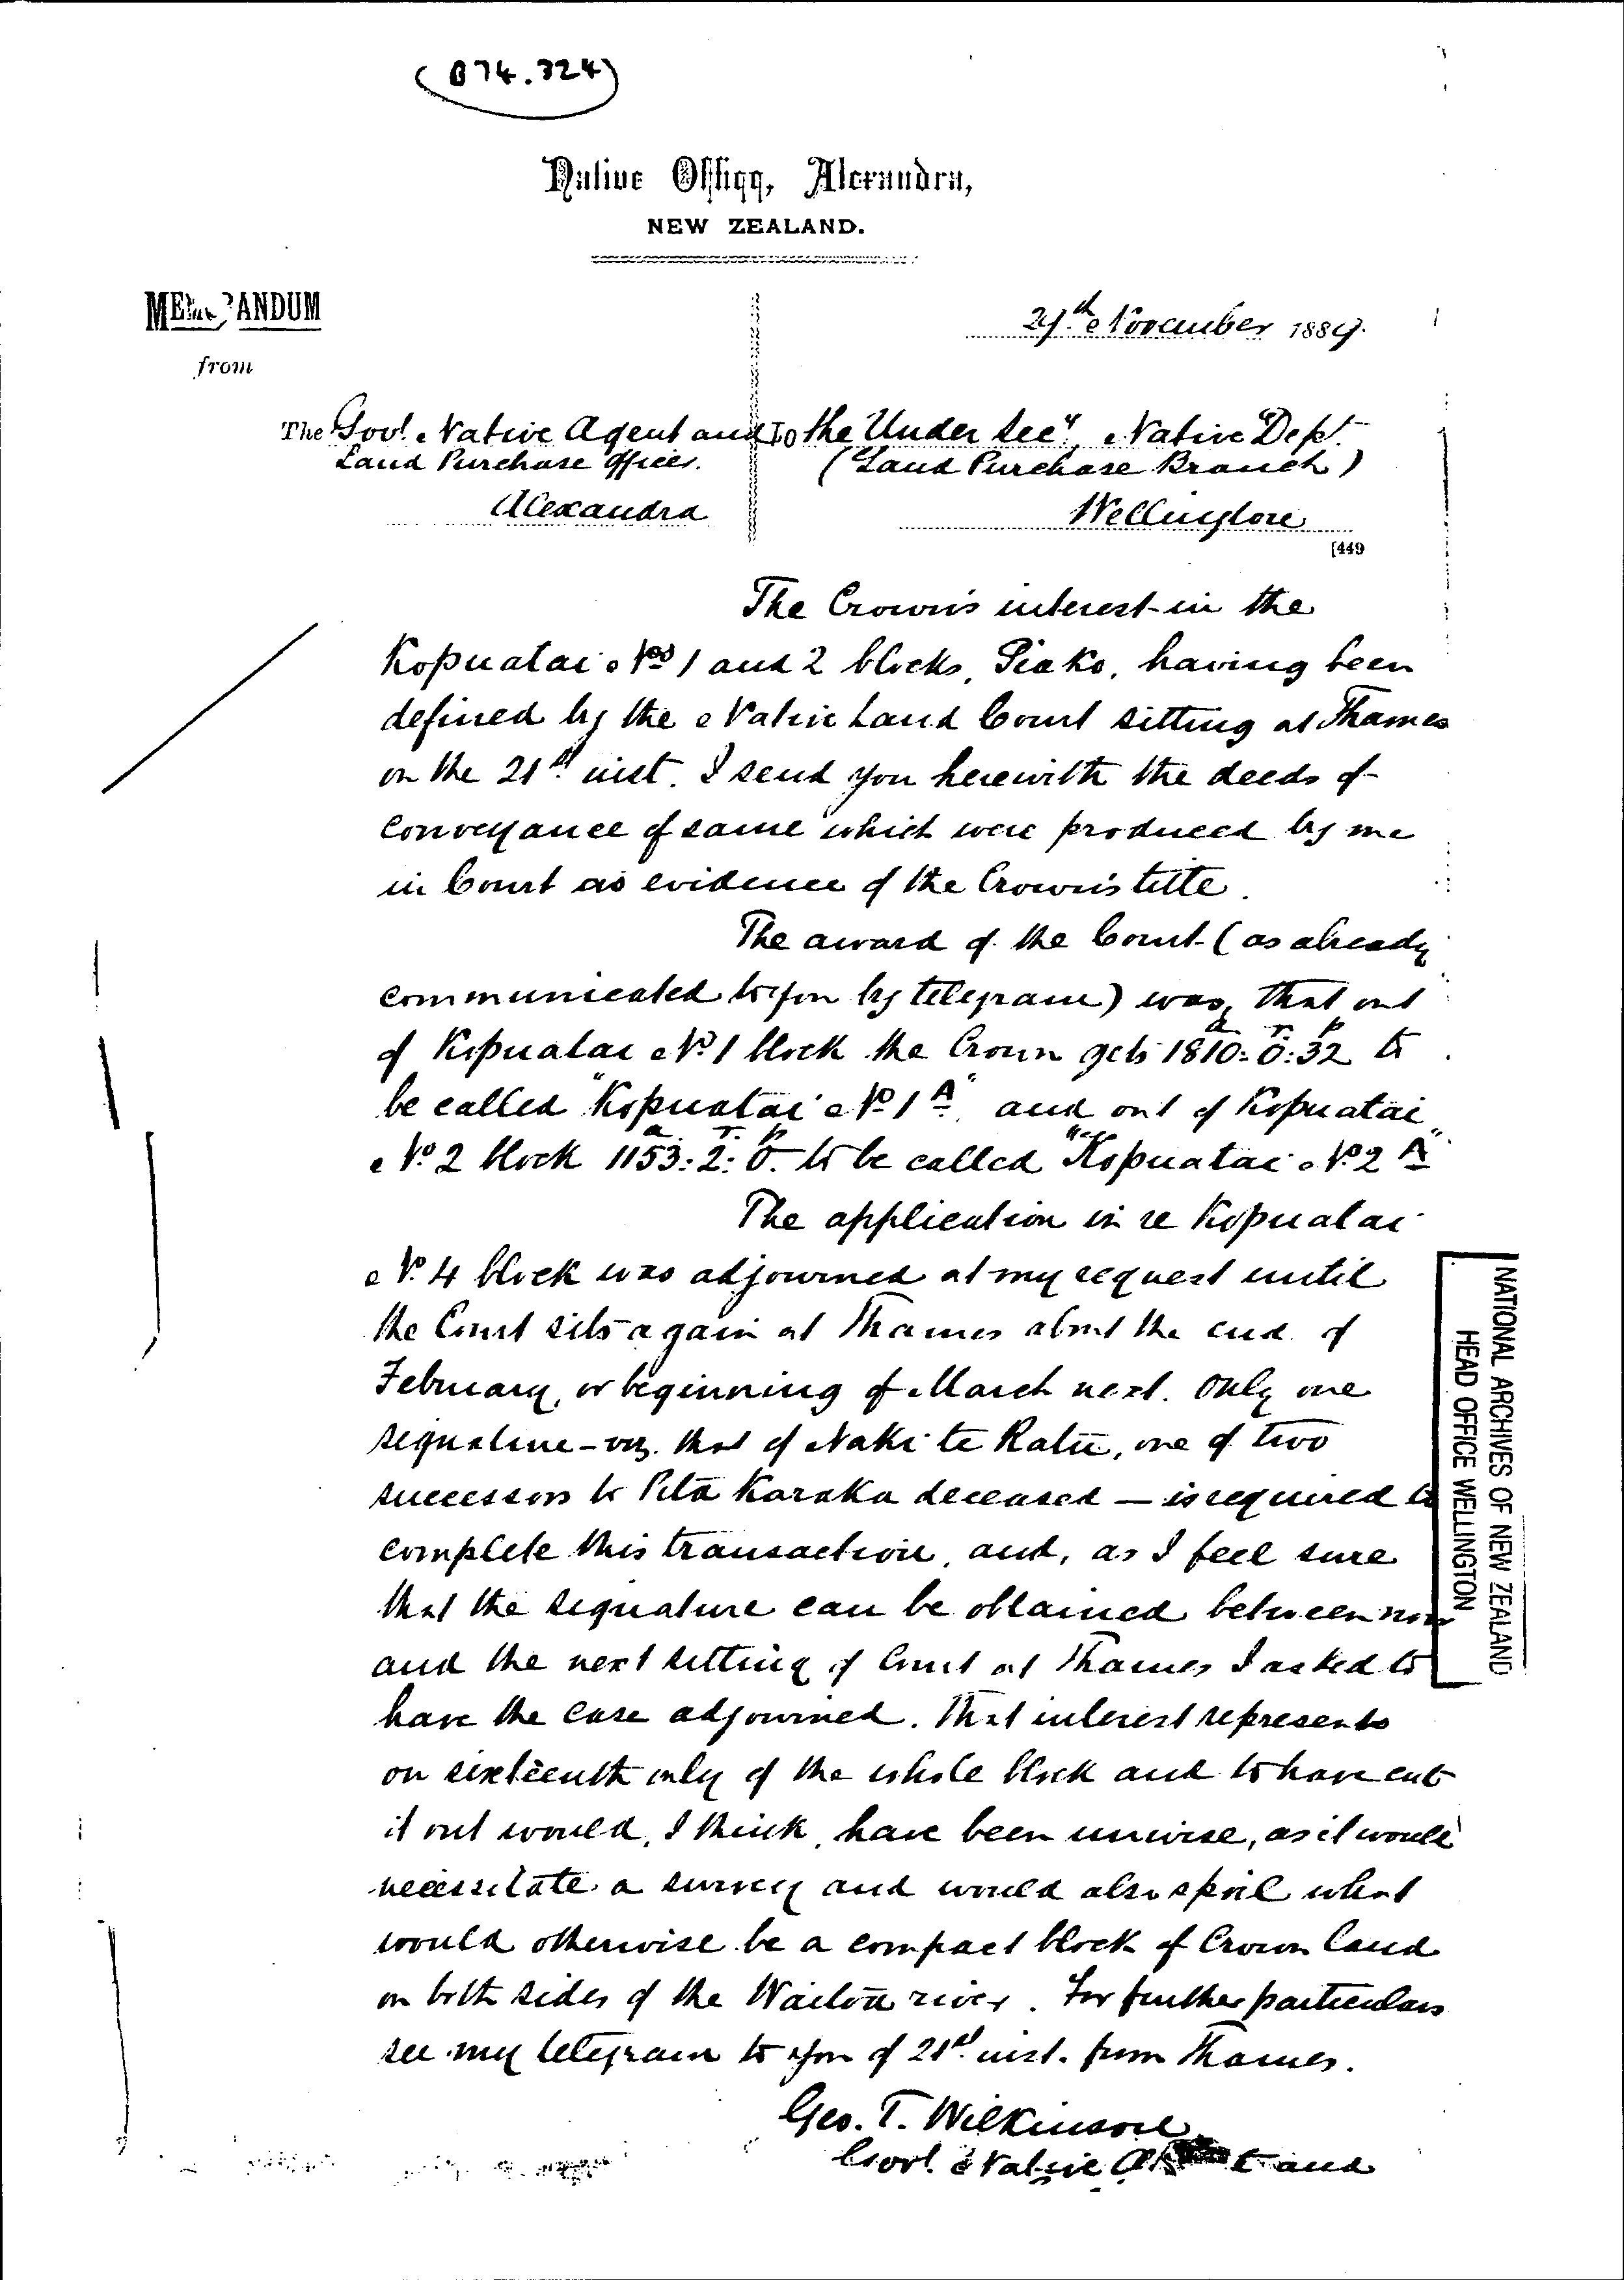 (B74.324)
Native Office, Alexandra,
NEW ZEALAND.
MEMORANDUM
from
29th November 1889.
The Govt. Native Agent and
Land Purchase Officer.
Alexandra
To the Under Secy, Native Dept.
(Land Purchase Branch)
Wellington
[449
The Crown's interest in the
Kopuatai Nos 1 and 2 blocks, Piako, having been
defined by the Native Land Court sitting at Thames
on the 21st inst. I send you herewith the deeds of
conveyance of same which were produced by me
in Court as evidence of the Crown's title.
The award of the Court (as already
communicated to you by telegram) was, that out
of Kopuatai No 1 block the Crown gets 1810a: 0r: 32p to
be called "Kopuatai No 1A" and out of Kopuatai
No 2 block 1153a: 2r: 0p. to be called "Kopuatai No 2A"
The application in re Kopuatai
No. 4 block was adjourned at my request until
the Court sits again at Thames about the end of
February, or beginning of March next. Only one
signature – viz. that of Naki te Ratu, one of two
successors to Pita Karaka deceased — is required to
complete this transaction, and, as I feel sure
that the signature can be obtained between now
and the next sitting of Court at Thames I asked to
have the case adjourned. That interest represents
on sixteenth only of the whole block and to have cut
it out would, I think, have been unwise, as it would
necessitate a survey and would also spoil what
would otherwise be a compact block of Crown land
on both sides of the Waitoa river. For further particulars
see my telegram to you of 21st inst. from Thames.
Geo. T. Wilkinson
Govt. Native Agent and
NATIONAL ARCHIVES OF NEW ZEALAND
HEAD OFFICE WELLINGTON